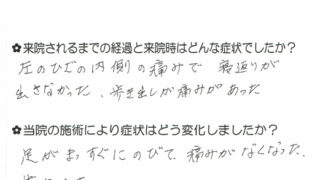 ✿来院されるまでの経過と来院時はどんな症状でしたか？
左のひざの内側の痛みで 寝返りが
出きなかった、歩き出しが痛みがあった
✿当院の施術により症状はどう変化しましたか？
足がまっすぐにのびて、痛みがなくなった、